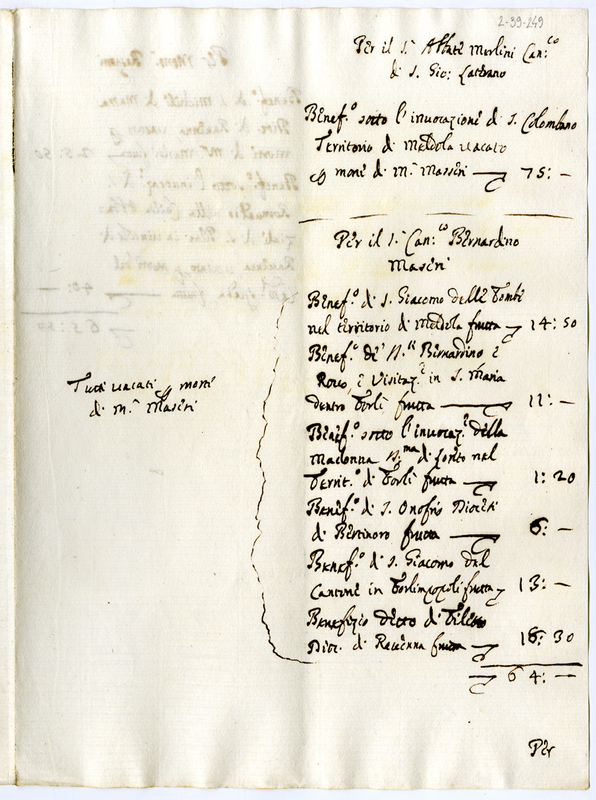 2-39-249
Per il S.r Abbate Merlini Can.co
di S. Gio: Laterano
Benef.o sotto l'invocazione di S. Colombano
Territorio di Meldola vacato
p morte di M.r Masseri 75: —
Per il S.r Can.co Bernardino
Maseri
Benef.o di S. Giacomo delle Tombe
nel territorio di Meldola frutta 14: 50
Benef.o de' Bernardino e
Rocco, e Visitaz.e in S. Maria
dentro Forlì frutta 11: —
Benef.o sotto l'invocaz.e della
Madonna di nel
Territ.o di Forlì frutta 1: 20
Benef.o di S. Onofrio Diocesi
di Bertinoro frutta 6: —
Benef.o di S. Giacomo del
Cantone in Forlimpopoli frutta 13: —
Benefizio detto di
Dioc. di Ravenna frutta 18: 30
64: —
Tutti vacati p morte
di M.r Maseri
Per